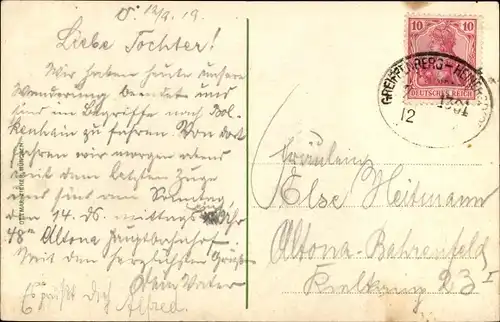 12/9. 19.
Liebe Tochter!
Wir haben heute unsere
Wanderung beendet und
sind im Begriffe nach Bol-
kenhain zu fahren. Von dort
fahren wir morgen abend
mit dem letzten Zuge
und sind am Sonntag,
den 14. ds. mittags Uhr
48 Altona Hauptbahnhof
Mit den herzlichsten Grüßen
Dein Vater
Es grüßt Dich Alfred.
10 10
DEUTSCHES REICH
GREIFFENBERG-HEINERSDORF
1801
12
Fräulein
Else Heitmann
Altona-Bahrenfeld
23 I